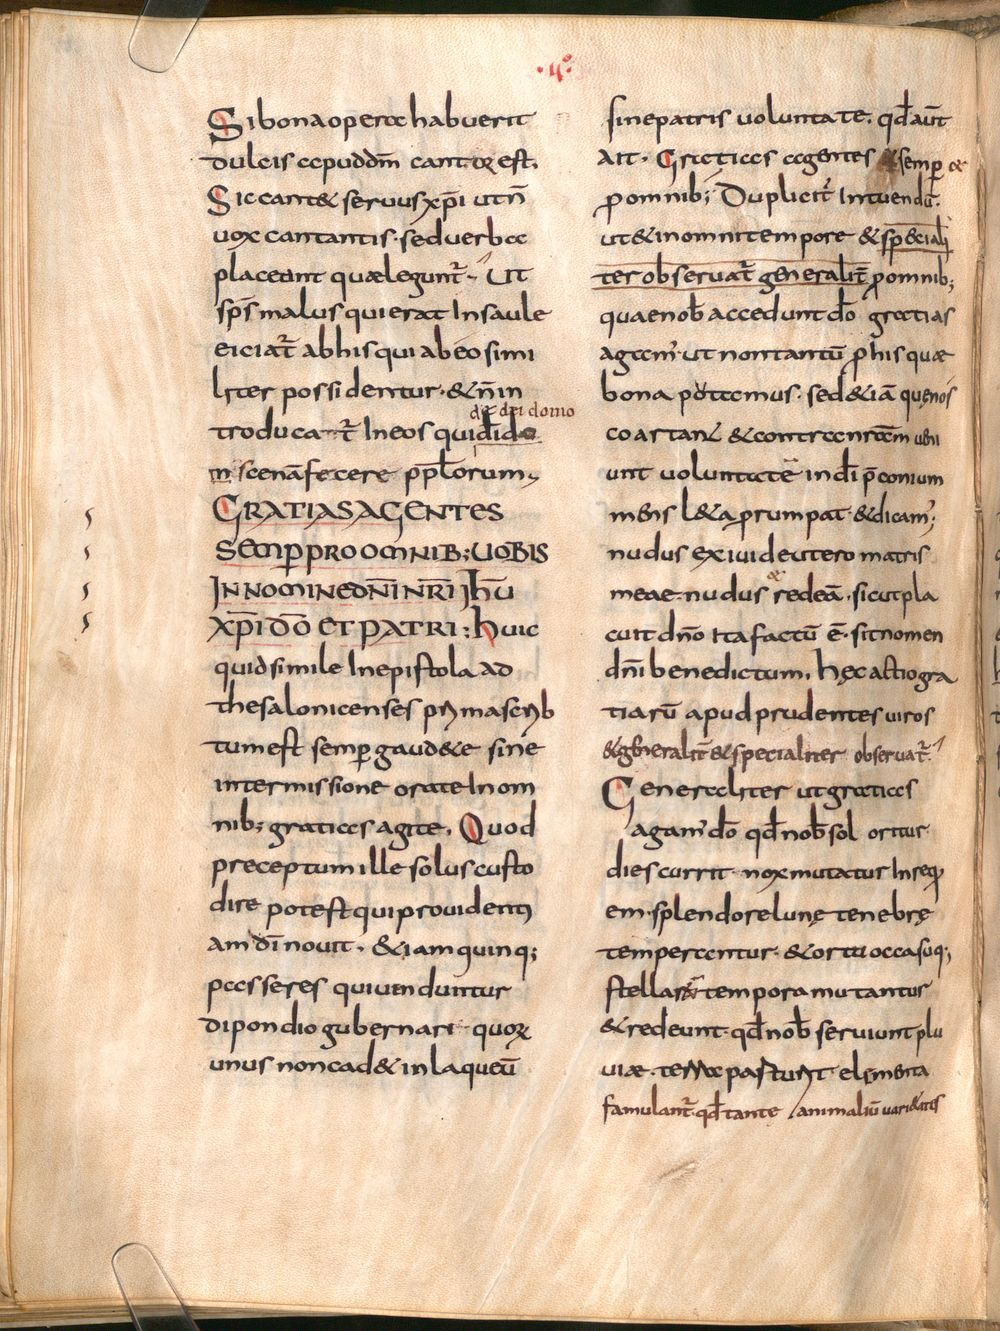 ·4°·
Si bona opera habuerit
dulcis apud dm̄ cantor est.
Sic cant& seruus xp̄i ut n̄
uox cantantis· sed uerba
placeant quæ legunt̄ ·/ Ut
sp̄s malus qui erat In saule
eiciat̄ ab his qui ab eo simi
liter possidentur· & n̄ in
de dei domo
troducat̄ In eos qui di do
m̄ scenā fecere pp̄lorum,
GRATIAS AGENTES
SEMP̲ PRO OMNIB; UOBIS
IN NOMINE DN̄I NR̄I IHU
XP̄I DŌ ET PATRI: huic
quid simile In epistola ad
thesalonicenses p̄ma scrib
tum est semp̲ gaud&e sine
intermissione orate In om
nib; gratias agite. Quod
preceptum ille solus custo
dire potest qui prouidenti
am dī nouit· & iam quinq;
passeres qui uenduntur
dipondio gubernari quorum
unus non cad& in laqueū
sine patris uoluntate. qd̄ aūt
Ait· Gratias agentes semp̲
p̲ omnib; Duplicit̄ Intuendū·
ut & in omni tempore & sp̄eciali
ter obseruat̄ generalit̄ p̲ omnib;
quae nob̄ accedunt dō gratias
agam̄· ut non tantū p̲ his quæ
bona putamus· sed & iā quę nos
coartant & contra nr̄am ueni
unt uoluntatē in dī p̄conium
mens l&a prumpat· & dicam̄;
nudus exiui de utero matris
meae· nudus & redeā· sicut pla
cuit dn̄o Ita factū ē· sit nomen
dn̄i benedictum, hęc actio gra
tiarū apud prudentes uiros
& generalit̄ & specialiter obseruat̄·/
Generaliter ut gratias
agam̄ dō qd̄ nob̄ sol oritur
dies currit· nox mutatur In requi
em· splendore lunę tenebrę
temperantur· & ortu occasuq;
stellarū tempora mutantur
& redeunt· qd̄ nob̄ seruiunt plu
uiæ· terræ parturiunt elementa
famulant̄· qd̄ tantę animaliū uari&ates